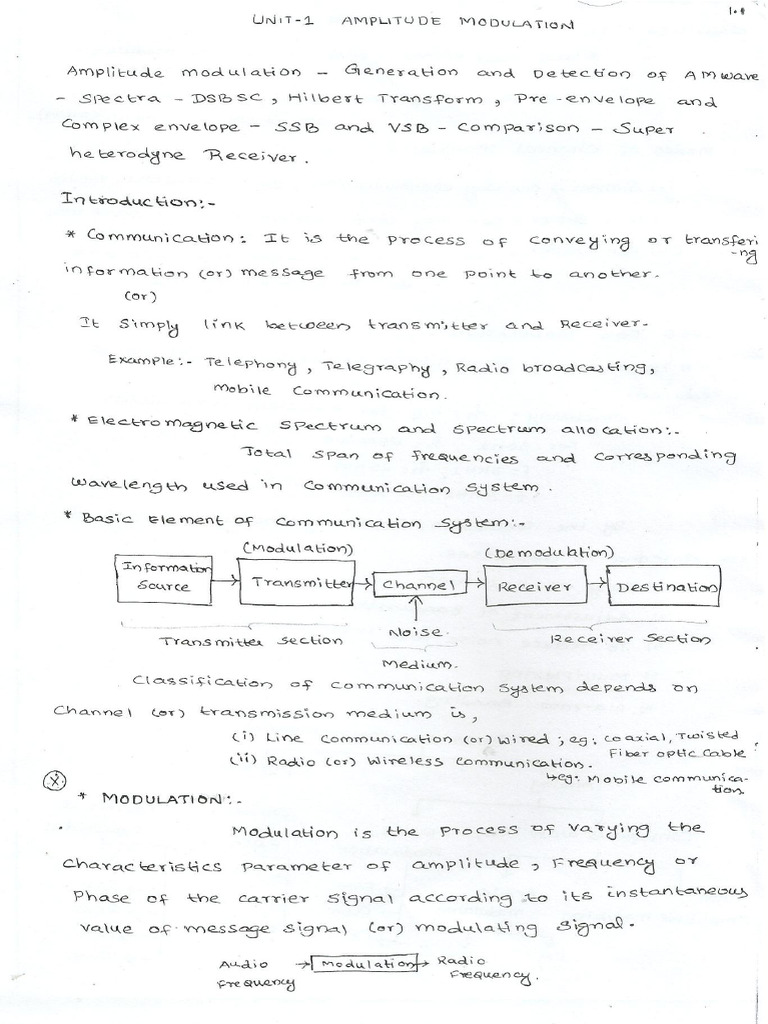 1.1
UNIT-1 AMPLITUDE MODULATION
Amplitude modulation - Generation and Detection of AM wave
- Spectra - DSBSC, Hilbert Transform, Pre-envelope and
complex envelope - SSB and VSB - Comparison - Super
heterodyne Receiver.
Introduction:-
* Communication: It is the process of conveying or transferi
-ng
information (or) message from one point to another.
(or)
It simply link between transmitter and Receiver.
Example:- Telephony, Telegraphy, Radio broadcasting,
Mobile Communication.
* Electromagnetic spectrum and spectrum allocation:-
Total span of frequencies and corresponding
wavelength used in communication system.
* Basic Element of communication system:-
(Modulation) (Demodulation)
Information Source → Transmitter → Channel → Receiver → Destination
Transmitter section Noise. Receiver section
Medium.
Classification of communication system depends on
Channel (or) transmission medium is,
(i) Line communication (or) wired ; eg: coaxial, Twisted,
Fiber optic cable.
(ii) Radio (or) Wireless communication.
↳eg: Mobile communica-
tion.
(X)
* MODULATION:-
Modulation is the process of varying the
characteristics parameter of amplitude, Frequency or
Phase of the carrier signal according to its instantaneous
value of message signal (or) modulating signal.
Audio → Modulation → Radio
Frequency Frequency.